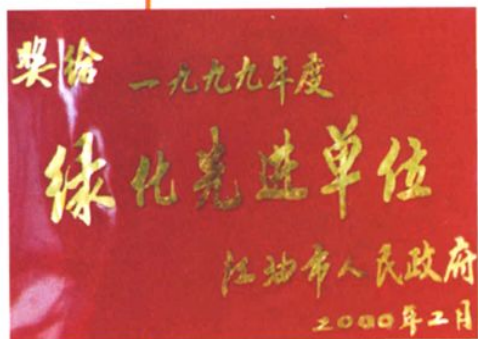 奖给
一九九九年度
绿化先进单位
江油市人民政府
2000年二月